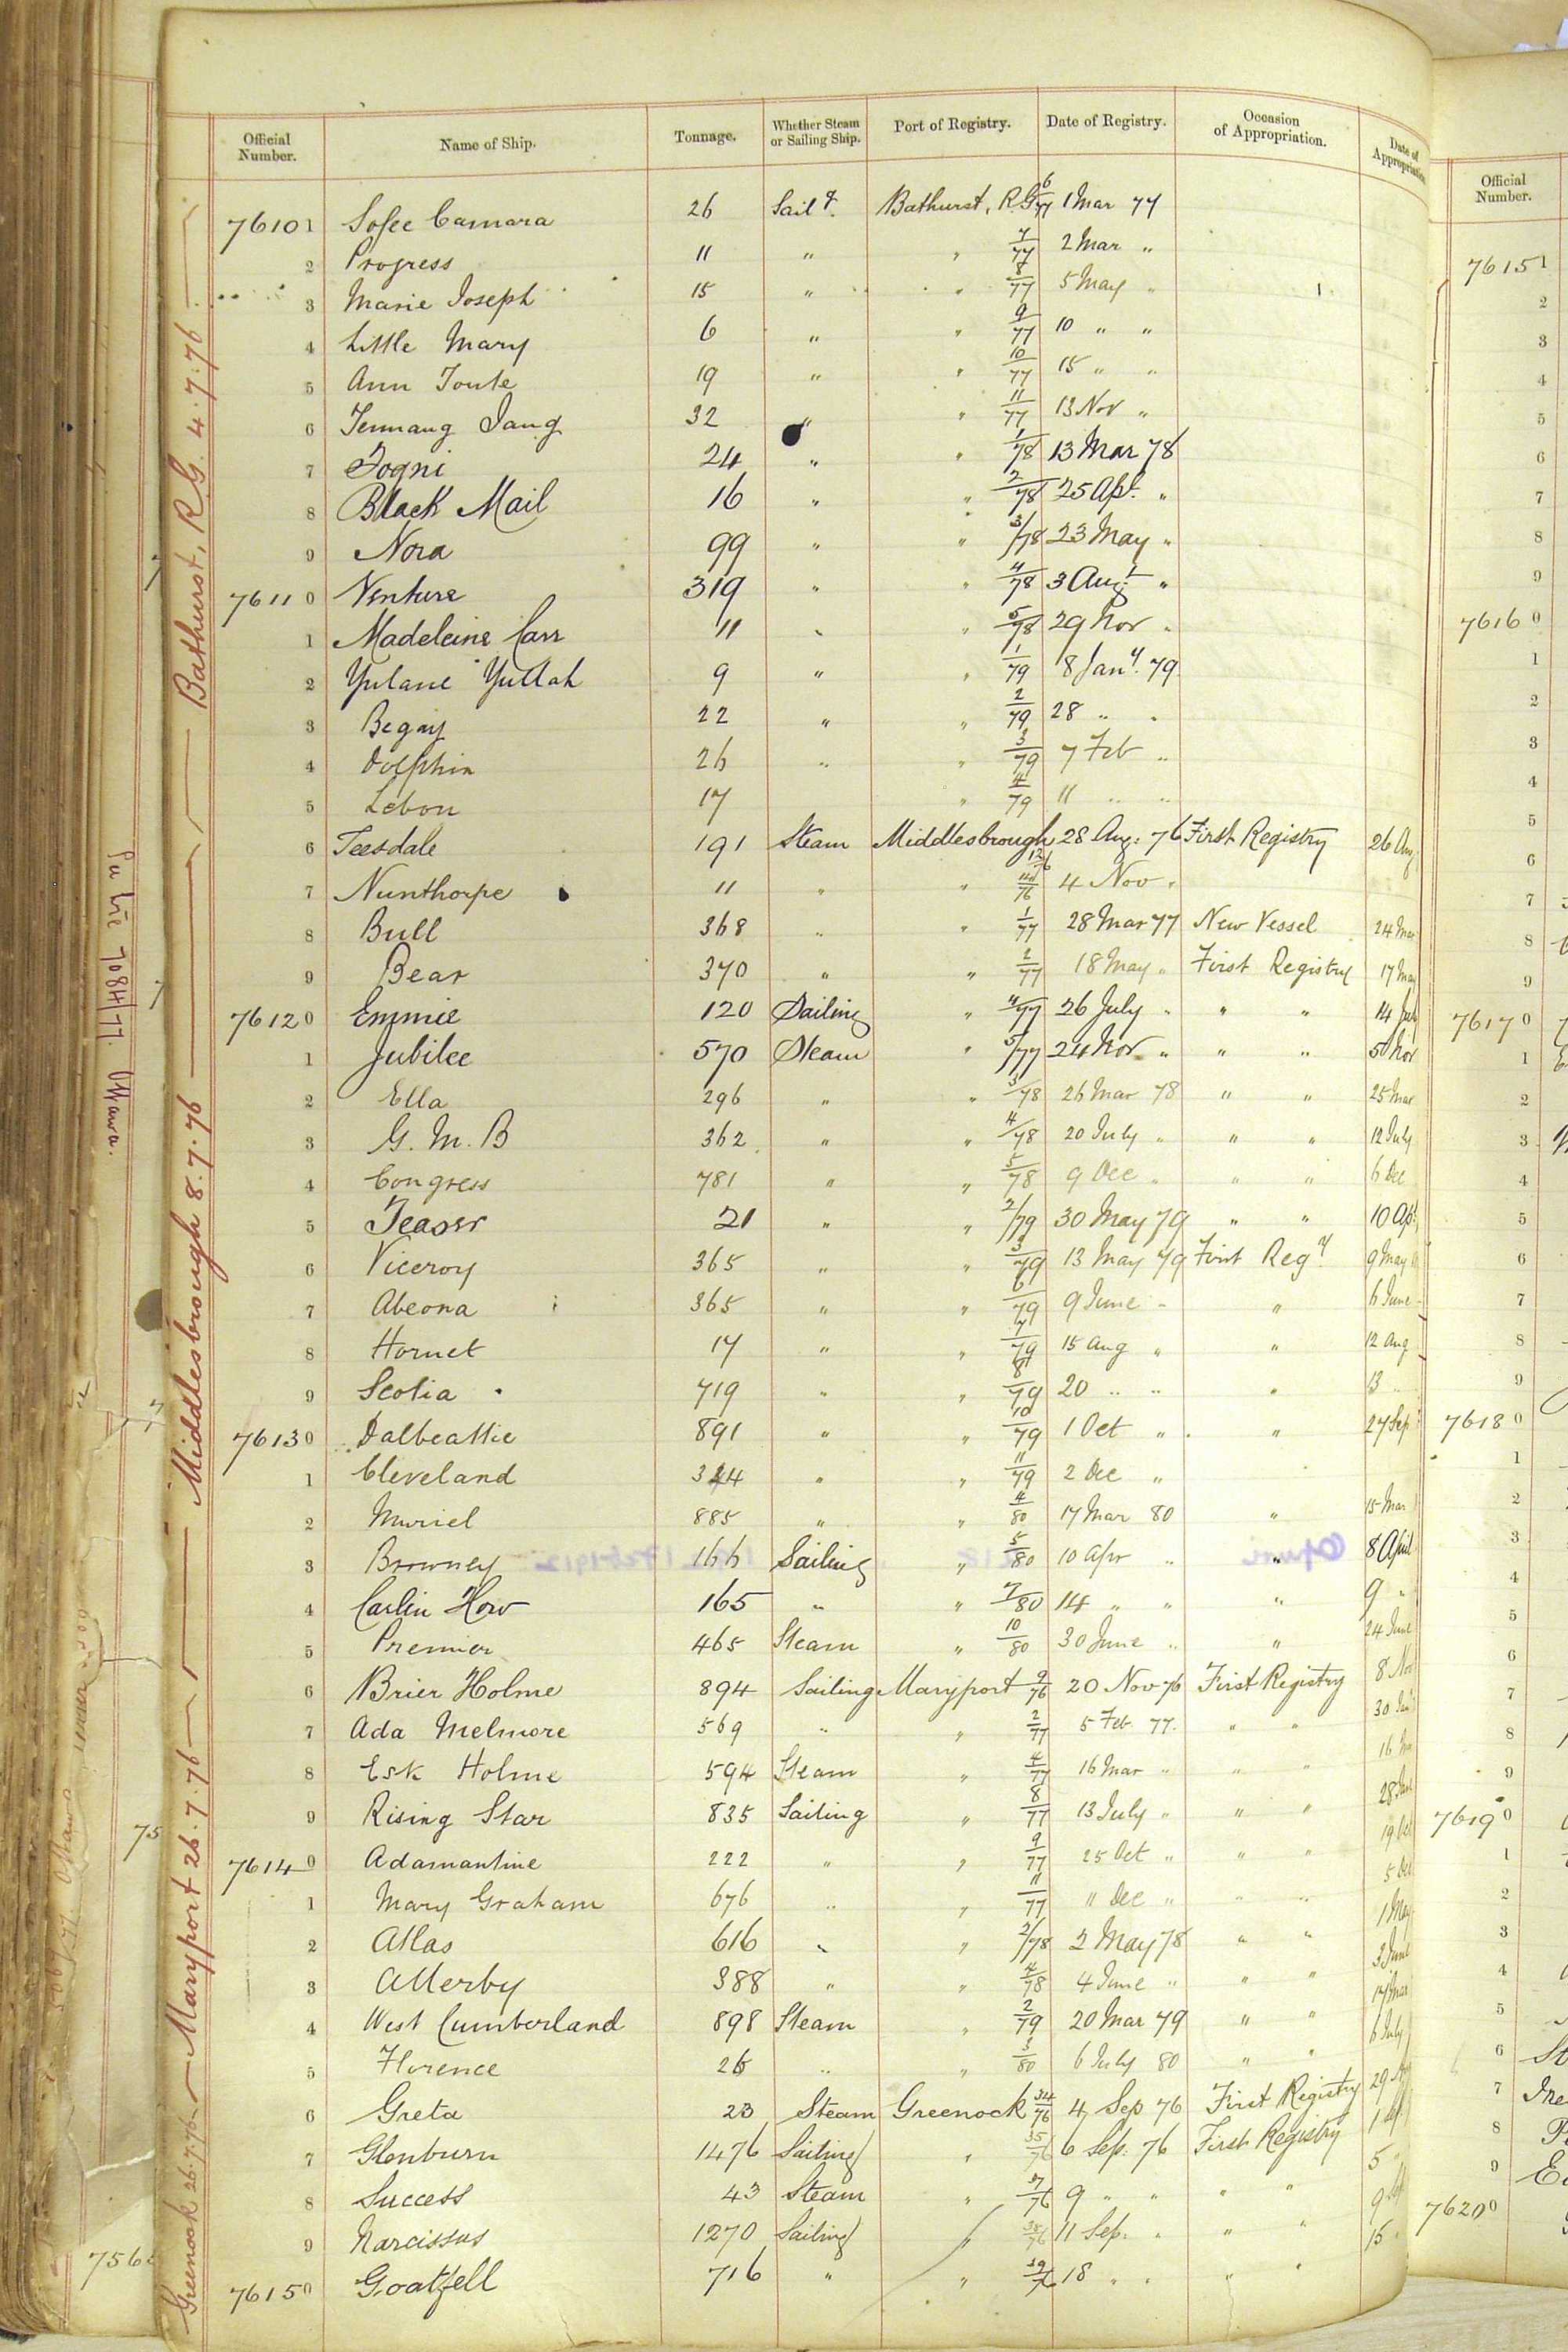 Official Number. Name of Ship. Tonnage. Whether Steam or Sailing Ship. Port of Registry. Date of Registry. Occasion of Appropriation. Date of Appropriation
76101 Sofee Camara 26 Sailg. Bathurst, R.G. 6/77 1 Mar 77
2 Progress 11 " " 7/77 2 Mar "
3 Marie Joseph 15 " " 8/77 5 May "
4 Little Mary 6 " " 9/77 10 " "
5 Ann Toute 19 " " 10/77 15 " "
6 32 " " 11/77 13 Nov "
7 Fogni 24 " " 1/78 13 Mar 78
8 Black Mail 16 " " 2/78 25 Apl. "
9 Nora 99 " " 3/78 23 May "
76110 Venture 319 " " 4/78 3 Augt "
1 Madeleine Carr 11 " " 5/78 29 Nov "
2 Yulane Yullah 9 " " 1/79 8 Jany. 79
3 Begay 22 " " 2/79 28 " "
4 Dolphin 26 " " 3/79 7 Feb "
5 Lebon 17 " 4/79 11 " "
6 Teesdale 191 Steam Middlesbrough 12/76 28 Aug. 76 First Registry 26 Aug
7 Nunthorpe 11 " " 14/76 4 Nov "
8 Bull 368 " " 1/77 28 Mar 77 New Vessel 24 Mar
9 Bear 370 " " 2/77 18 May " First Registry 17 May
76120 Emmie 120 Sailing " 4/77 26 July " " " 14 July
1 Jubilee 570 Steam " 5/77 24 Nov " " " 5 Nov
2 Ella 296 " " 3/78 26 Mar 78 " " 25 Mar
3 G. M. B 362 " " 4/78 20 July " " " 12 July
4 Congress 781 " " 5/78 9 Dec " " " 6 Dec
5 Teaser 21 " " 2/79 30 May 79 " " 10 Apl
6 Viceroy 365 " " 3/79 13 May 79 First Regy. 9 May
7 Abeona 365 " " 6/79 9 June " " 6 June
8 Hornet 17 " " 7/79 15 Aug " " 12 Aug
9 Scotia 719 " " 8/79 20 " " " 13 "
76130 Dalbeattie 891 " " 10/79 1 Oct " " 27 Sep
1 Cleveland " " 11/79 2 Dec "
2 Muriel 885 " " 4/80 17 Mar 80 " 15 Mar
3 Browney 166 Sailing " 5/80 10 Apr " " 8 April
4 Carlin How 165 " " 7/80 14 " " " 9 "
5 Premier 465 Steam " 10/80 30 June " " 24 June
6 Brier Holme 894 Sailing Maryport 9/76 20 Nov 76 First Registry 8 Nov
7 Ada Melmore 569 " " 2/77 5 Feb. 77. " " 30 Jan
8 Esk Holme 594 Steam " 4/77 16 Mar " " " 16
9 Rising Star 835 Sailing " 8/77 13 July " " " 28 June
76140 Adamantine 222 " " 9/77 25 Oct " " " 19 Oct
1 Mary Graham 676 " " 11/77 11 Dec " " " 5 Dec
2 Atlas 616 " " 2/78 2 May 78 " " 1 May
3 Allerby 388 " " 4/78 4 June " " " 3 June
4 West Cumberland 898 Steam " 2/79 20 Mar 79 " " 17 Mar
5 Florence 26 " " 3/80 6 July 80 " " 6 July
6 Greta 23 Steam Greenock 34/76 4 Sep 76 First Registry 29
7 Glenburn 1476 Sailing " 35/76 6 Sep. 76 First Registry 1 Sep
8 Success 43 Steam " 37/76 9 " " " " 5 "
9 Narcissus 1270 Sailing " 38/76 11 Sep. " " " 9 Sep
76150 Goatfell 716 " " 39/76 18 " " " " 15 "
Bathurst, R.G. 4.7.76
Middlesbrough 8.7.76
Maryport 26.7.76
Greenock 26.7.76
7084/77 Ottawa.
Ottawa
75
756
Official Number.
76151
2
3
4
5
6
7
8
9
76160
1
2
3
4
5
6
7
8
9
76170
1
2
3
4
5
6
7
8
9
76180
1
2
3
4
5
6
7
8
9
76190
1
2
3
4
5
6
7
8
9
76200